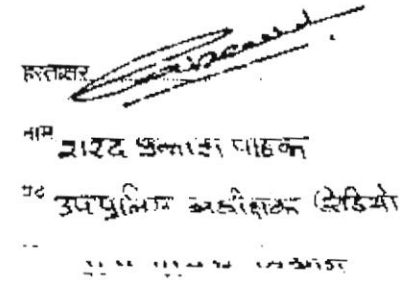 हस्ताक्षर
नाम शरद प्रकाश पाठक
पद उप पुलिस अधीक्षक (रेडियो